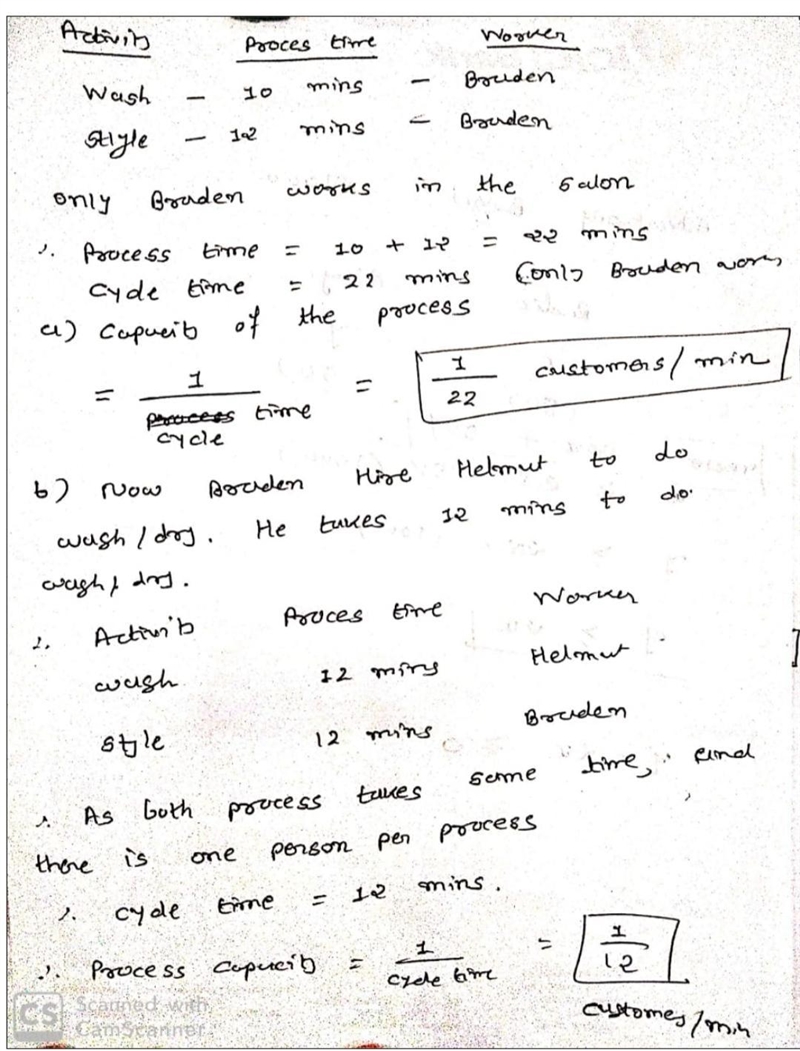 Activity Proces time Worker
Wash - 10 mins - Braden
Style - 12 mins - Braden
only Braden works in the salon
∴ Process time = 10 + 12 = 22 mins
Cycle time = 22 mins (only Braden works
a) Capacity of the process
= 1 / cycle time = 1/22 customers/min
b) Now Braden Hire Helmut to do
wash / dry. He takes 12 mins to do.
wash / dry.
∴ Activity Proces time Worker
wash 12 mins Helmut
style 12 mins Braden
∴ As both process takes same time, and
there is one person per process
∴ cycle time = 12 mins.
∴ Process capacity = 1 / cycle time = 1/12
customes/min
CS Scanned with
CamScanner